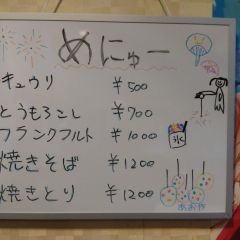 めにゅー
キュウリ ¥500
とうもろこし ¥700
フランクフルト ¥1000
焼きそば ¥1200
焼きとり ¥1200
氷